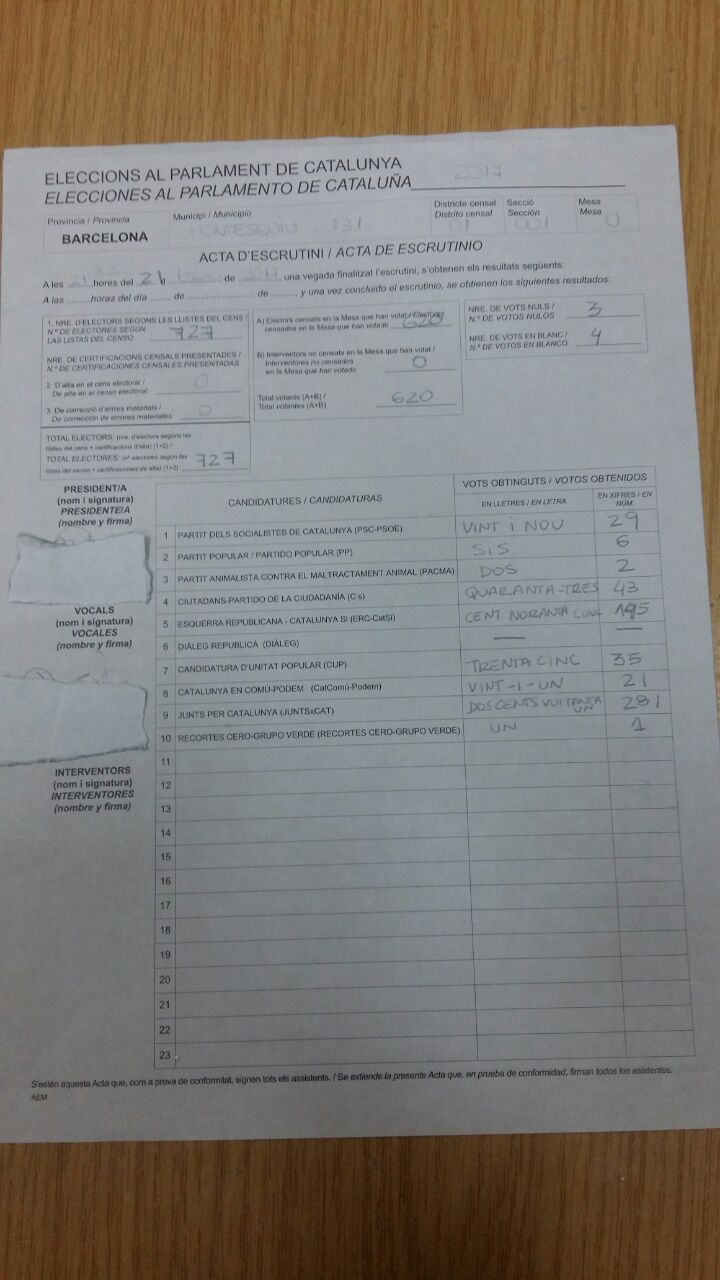 ELECCIONS AL PARLAMENT DE CATALUNYA
ELECCIONES AL PARLAMENTO DE CATALUÑA 2017
Província / Provincia
BARCELONA
Municipi / Municipio
MONTESQUIU - 131
Districte censal
Distrito censal
01
Secció
Sección
001
Mesa
Mesa
U
ACTA D'ESCRUTINI / ACTA DE ESCRUTINIO
A les ... hores del 21 d ... de 2017, una vegada finalitzat l'escrutini, s'obtenen els resultats següents:
A las ......... horas del día ........ de ........................ de ........, y una vez concluido el escrutinio, se obtienen los siguientes resultados:
1. NRE. D'ELECTORS SEGONS LES LLISTES DEL CENS /
N.º DE ELECTORES SEGÚN
LAS LISTAS DEL CENSO 727
NRE. DE CERTIFICACIONS CENSALS PRESENTADES /
N.º DE CERTIFICACIONES CENSALES PRESENTADAS
2. D'alta en el cens electoral /
De alta en el censo electoral: 0
3. De correcció d'errors materials /
De corrección de errores materiales: 0
TOTAL ELECTORS: (nre. d'electors segons les
llistes del cens + certificacions d'alta) (1+2) /
TOTAL ELECTORES: (nº electores según las
listas del censo + certificaciones de alta) (1+2) 727
A) Electors censats en la Mesa que han votat / Electores
censados en la Mesa que han votado 620
B) Interventors no censats en la Mesa que han votat /
Interventores no censados
en la Mesa que han votado 0
Total votants (A+B) /
Total votantes (A+B) 620
NRE. DE VOTS NULS /
N.º DE VOTOS NULOS 3
NRE. DE VOTS EN BLANC /
N.º DE VOTOS EN BLANCO 4
PRESIDENT/A
(nom i signatura)
PRESIDENTE/A
(nombre y firma)
VOCALS
(nom i signatura)
VOCALES
(nombre y firma)
INTERVENTORS
(nom i signatura)
INTERVENTORES
(nombre y firma)
CANDIDATURES / CANDIDATURAS
VOTS OBTINGUTS / VOTOS OBTENIDOS
EN LLETRES / EN LETRA
EN XIFRES / EN NÚM.
1 PARTIT DELS SOCIALISTES DE CATALUNYA (PSC-PSOE) VINT I NOU 29
2 PARTIT POPULAR / PARTIDO POPULAR (PP) SIS 6
3 PARTIT ANIMALISTA CONTRA EL MALTRACTAMENT ANIMAL (PACMA) DOS 2
4 CIUTADANS-PARTIDO DE LA CIUDADANÍA (C's) QUARANTA-TRES 43
5 ESQUERRA REPUBLICANA - CATALUNYA SÍ (ERC-CatSí) CENT NORANTA CINC 195
6 DIÀLEG REPUBLICÀ (DIÀLEG) — —
7 CANDIDATURA D'UNITAT POPULAR (CUP) TRENTA CINC 35
8 CATALUNYA EN COMÚ-PODEM (CatComú-Podem) VINT-I-UN 21
9 JUNTS PER CATALUNYA (JUNTSxCAT) DOS CENTS VUITANTA UN 281
10 RECORTES CERO-GRUPO VERDE (RECORTES CERO-GRUPO VERDE) UN 1
11
12
13
14
15
16
17
18
19
20
21
22
23
S'estén aquesta Acta que, com a prova de conformitat, signen tots els assistents. / Se extiende la presente Acta que, en prueba de conformidad, firman todos los asistentes.
AEM